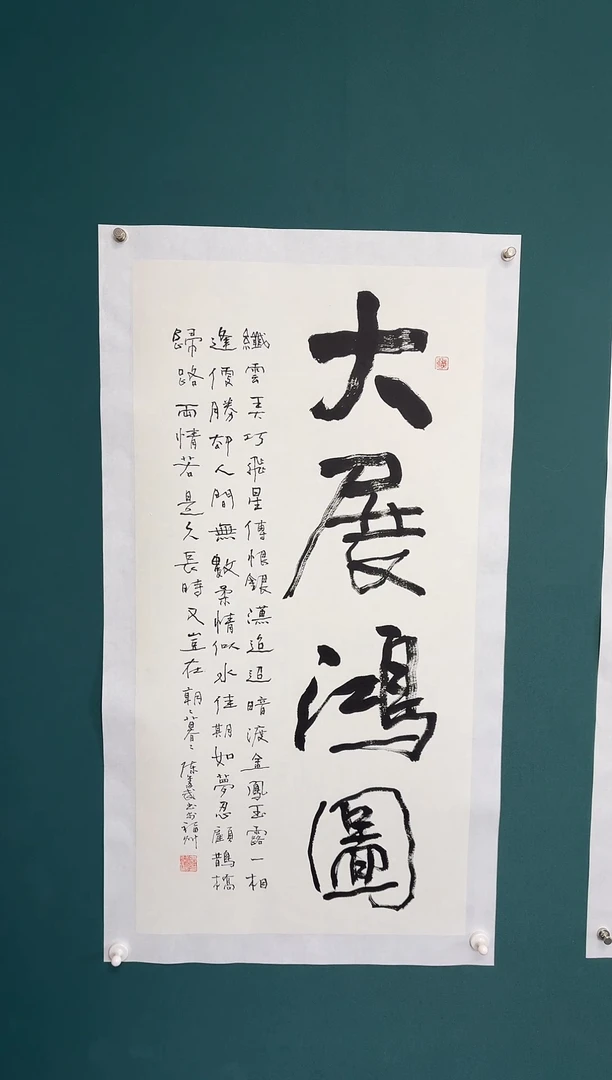 大展鴻圖
纖雲弄巧飛星傳恨銀漢迢迢暗渡金鳳玉露一相
逢便勝却人間無數柔情似水佳期如夢忍顧鵲橋
歸路兩情若是久長時又豈在朝〻暮〻 陳 書於福州